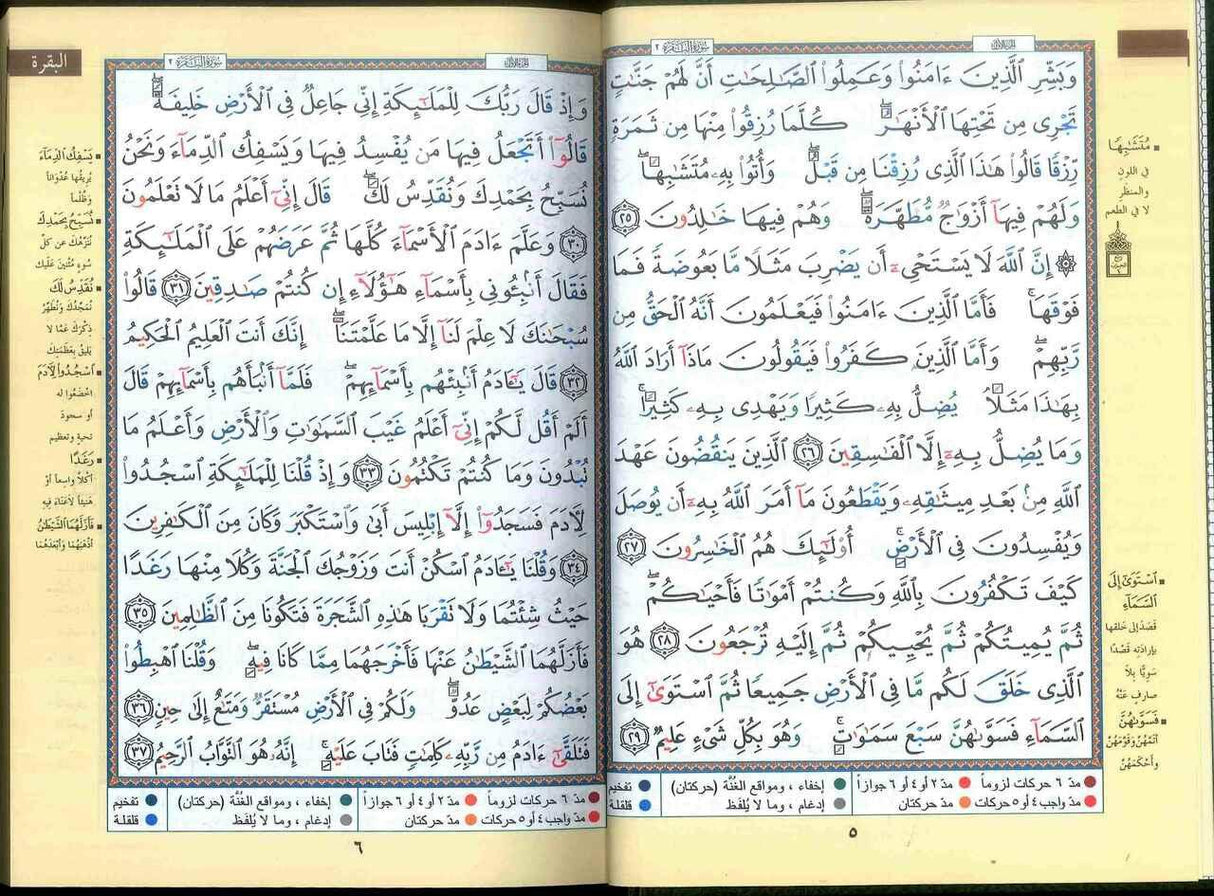 الجزء الأول
سورة البقرة ٢
وَبَشِّرِ ٱلَّذِينَ ءَامَنُوا۟ وَعَمِلُوا۟ ٱلصَّـٰلِحَـٰتِ أَنَّ لَهُمْ جَنَّـٰتٍ
تَجْرِى مِن تَحْتِهَا ٱلْأَنْهَـٰرُ ۖ كُلَّمَا رُزِقُوا۟ مِنْهَا مِن ثَمَرَةٍ
رِّزْقًا قَالُوا۟ هَـٰذَا ٱلَّذِى رُزِقْنَا مِن قَبْلُ ۖ وَأُتُوا۟ بِهِۦ مُتَشَـٰبِهًا ۖ
وَلَهُمْ فِيهَآ أَزْوَٰجٌ مُّطَهَّرَةٌ ۖ وَهُمْ فِيهَا خَـٰلِدُونَ ٢٥
۞ إِنَّ ٱللَّهَ لَا يَسْتَحْىِۦٓ أَن يَضْرِبَ مَثَلًا مَّا بَعُوضَةً فَمَا
فَوْقَهَا ۚ فَأَمَّا ٱلَّذِينَ ءَامَنُوا۟ فَيَعْلَمُونَ أَنَّهُ ٱلْحَقُّ مِن
رَّبِّهِمْ ۖ وَأَمَّا ٱلَّذِينَ كَفَرُوا۟ فَيَقُولُونَ مَاذَآ أَرَادَ ٱللَّهُ
بِهَـٰذَا مَثَلًا ۘ يُضِلُّ بِهِۦ كَثِيرًا وَيَهْدِى بِهِۦ كَثِيرًا ۚ
وَمَا يُضِلُّ بِهِۦٓ إِلَّا ٱلْفَـٰسِقِينَ ٢٦ ٱلَّذِينَ يَنقُضُونَ عَهْدَ
ٱللَّهِ مِنۢ بَعْدِ مِيثَـٰقِهِۦ وَيَقْطَعُونَ مَآ أَمَرَ ٱللَّهُ بِهِۦٓ أَن يُوصَلَ
وَيُفْسِدُونَ فِى ٱلْأَرْضِ ۚ أُو۟لَـٰٓئِكَ هُمُ ٱلْخَـٰسِرُونَ ٢٧
كَيْفَ تَكْفُرُونَ بِٱللَّهِ وَكُنتُمْ أَمْوَٰتًا فَأَحْيَـٰكُمْ ۖ
ثُمَّ يُمِيتُكُمْ ثُمَّ يُحْيِيكُمْ ثُمَّ إِلَيْهِ تُرْجَعُونَ ٢٨ هُوَ
ٱلَّذِى خَلَقَ لَكُم مَّا فِى ٱلْأَرْضِ جَمِيعًا ثُمَّ ٱسْتَوَىٰٓ إِلَى
ٱلسَّمَآءِ فَسَوَّىٰهُنَّ سَبْعَ سَمَـٰوَٰتٍ ۚ وَهُوَ بِكُلِّ شَىْءٍ عَلِيمٌ ٢٩
مُتَشَـٰبِهًا
في اللون
والمنظر
لا في الطعم
ٱسْتَوَىٰٓ إِلَى
ٱلسَّمَآءِ
قصد إلى خلقها
بإرادته قصدًا
سويًّا بلا
صارف عنه
فَسَوَّىٰهُنَّ
أتمهن وقومهن
وأحكمهن
مدّ ٦ حركات لزوماً مدّ ٢ أو ٤ أو ٦ جوازاً إخفاء ، ومواقع الغُنَّة (حركتان) تفخيم
مدّ واجب ٤ أو ٥ حركات مدّ حركتان إدغام ، وما لا يُلفَظ قلقلة
٥
البقرة
الجزء الأول
سورة البقرة ٢
وَإِذْ قَالَ رَبُّكَ لِلْمَلَـٰٓئِكَةِ إِنِّى جَاعِلٌ فِى ٱلْأَرْضِ خَلِيفَةً ۖ
قَالُوٓا۟ أَتَجْعَلُ فِيهَا مَن يُفْسِدُ فِيهَا وَيَسْفِكُ ٱلدِّمَآءَ وَنَحْنُ
نُسَبِّحُ بِحَمْدِكَ وَنُقَدِّسُ لَكَ ۖ قَالَ إِنِّىٓ أَعْلَمُ مَا لَا تَعْلَمُونَ
٣٠ وَعَلَّمَ ءَادَمَ ٱلْأَسْمَآءَ كُلَّهَا ثُمَّ عَرَضَهُمْ عَلَى ٱلْمَلَـٰٓئِكَةِ
فَقَالَ أَنۢبِـُٔونِى بِأَسْمَآءِ هَـٰٓؤُلَآءِ إِن كُنتُمْ صَـٰدِقِينَ ٣١ قَالُوا۟
سُبْحَـٰنَكَ لَا عِلْمَ لَنَآ إِلَّا مَا عَلَّمْتَنَآ ۖ إِنَّكَ أَنتَ ٱلْعَلِيمُ ٱلْحَكِيمُ
٣٢ قَالَ يَـٰٓـَٔادَمُ أَنۢبِئْهُم بِأَسْمَآئِهِمْ ۖ فَلَمَّآ أَنۢبَأَهُم بِأَسْمَآئِهِمْ قَالَ
أَلَمْ أَقُل لَّكُمْ إِنِّىٓ أَعْلَمُ غَيْبَ ٱلسَّمَـٰوَٰتِ وَٱلْأَرْضِ وَأَعْلَمُ مَا
تُبْدُونَ وَمَا كُنتُمْ تَكْتُمُونَ ٣٣ وَإِذْ قُلْنَا لِلْمَلَـٰٓئِكَةِ ٱسْجُدُوا۟
لِـَٔادَمَ فَسَجَدُوٓا۟ إِلَّآ إِبْلِيسَ أَبَىٰ وَٱسْتَكْبَرَ وَكَانَ مِنَ ٱلْكَـٰفِرِينَ
٣٤ وَقُلْنَا يَـٰٓـَٔادَمُ ٱسْكُنْ أَنتَ وَزَوْجُكَ ٱلْجَنَّةَ وَكُلَا مِنْهَا رَغَدًا
حَيْثُ شِئْتُمَا وَلَا تَقْرَبَا هَـٰذِهِ ٱلشَّجَرَةَ فَتَكُونَا مِنَ ٱلظَّـٰلِمِينَ ٣٥
فَأَزَلَّهُمَا ٱلشَّيْطَـٰنُ عَنْهَا فَأَخْرَجَهُمَا مِمَّا كَانَا فِيهِ ۖ وَقُلْنَا ٱهْبِطُوا۟
بَعْضُكُمْ لِبَعْضٍ عَدُوٌّ ۖ وَلَكُمْ فِى ٱلْأَرْضِ مُسْتَقَرٌّ وَمَتَـٰعٌ إِلَىٰ حِينٍ ٣٦
فَتَلَقَّىٰٓ ءَادَمُ مِن رَّبِّهِۦ كَلِمَـٰتٍ فَتَابَ عَلَيْهِ ۚ إِنَّهُۥ هُوَ ٱلتَّوَّابُ ٱلرَّحِيمُ ٣٧
يَسْفِكُ ٱلدِّمَآءَ
يريقها عدوانًا
وظلمًا
نُسَبِّحُ بِحَمْدِكَ
ننزهك عن كل
سوء مثنين عليك
نُقَدِّسُ لَكَ
نمجدك ونطهر
ذكرك عما لا
يليق بعظمتك
ٱسْجُدُوا۟ لِـَٔادَمَ
اخضعوا له
أو سجود
تحية وتعظيم
رَغَدًا
أكلًا واسعًا أو
هنيئًا لا عناء فيه
فَأَزَلَّهُمَا ٱلشَّيْطَـٰنُ
أذهبهما وأبعدهما
مدّ ٦ حركات لزوماً مدّ ٢ أو ٤ أو ٦ جوازاً إخفاء ، ومواقع الغُنَّة (حركتان) تفخيم
مدّ واجب ٤ أو ٥ حركات مدّ حركتان إدغام ، وما لا يُلفَظ قلقلة
٦